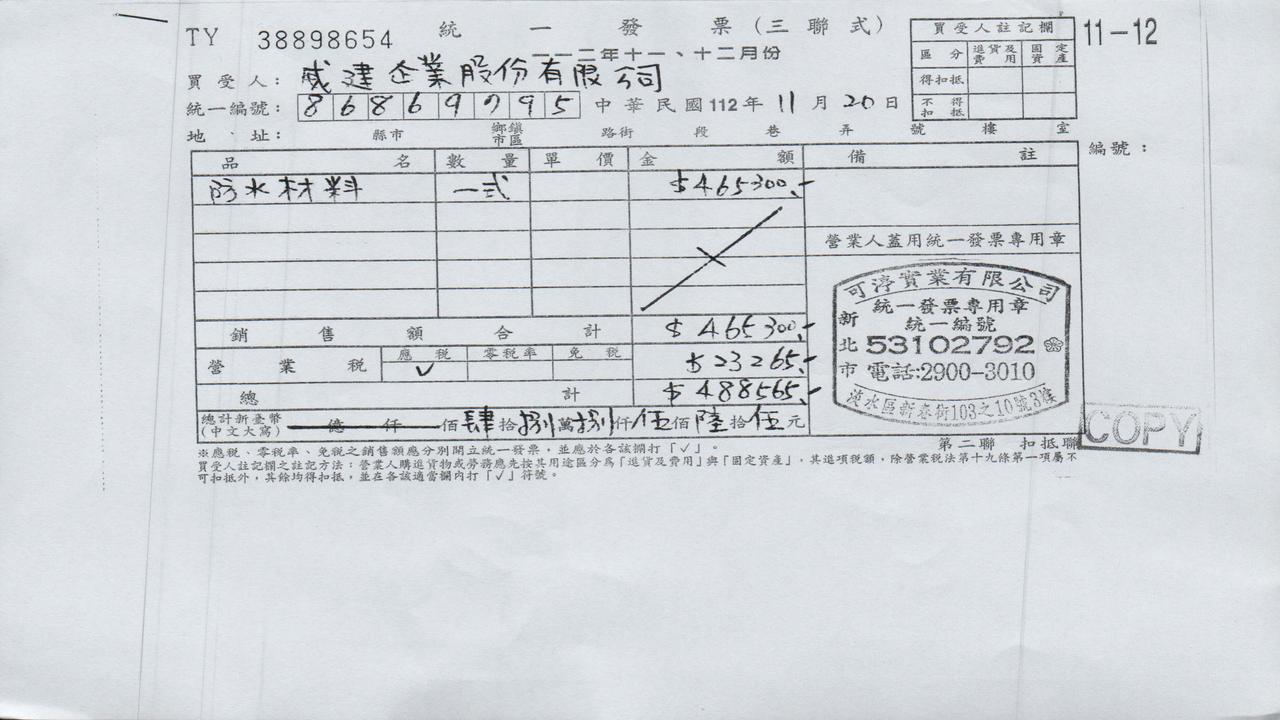 TY 38898654
統一發票(三聯式)
一一二年十一、十二月份
11-12
買受人註記欄
區分 進貨及費用 固定資產
得扣抵
不得扣抵
買受人: 威建企業股份有限公司
統一編號: 86869795 中華民國112年11月20日
地址: 縣市 鄉鎮市區 路街 段 巷 弄 號 樓 室
編號:
品名 數量 單價 金額 備註
防水材料 一式 $465300.-
營業人蓋用統一發票專用章
銷售額合計 $465300.-
營業稅 應稅 零稅率 免稅 $23265.-
✓
總計 $488565.-
總計新臺幣(中文大寫) 億 仟 佰 肆 拾 捌 萬 捌 仟 伍 佰 陸 拾 伍 元
可渟實業有限公司
統一發票專用章
統一編號
新北市
53102792
電話:2900-3010
淡水區新春街103之10號3樓
第二聯 扣抵聯
COPY
※應稅、零稅率、免稅之銷售額應分別開立統一發票,並應於各該欄打「✓」。
買受人註記欄之註記方法:營業人購進貨物或勞務應先按其用途區分為「進貨及費用」與「固定資產」,其進項稅額,除營業稅法第十九條第一項屬不
可扣抵外,其餘均得扣抵,並在各該適當欄內打「✓」符號。